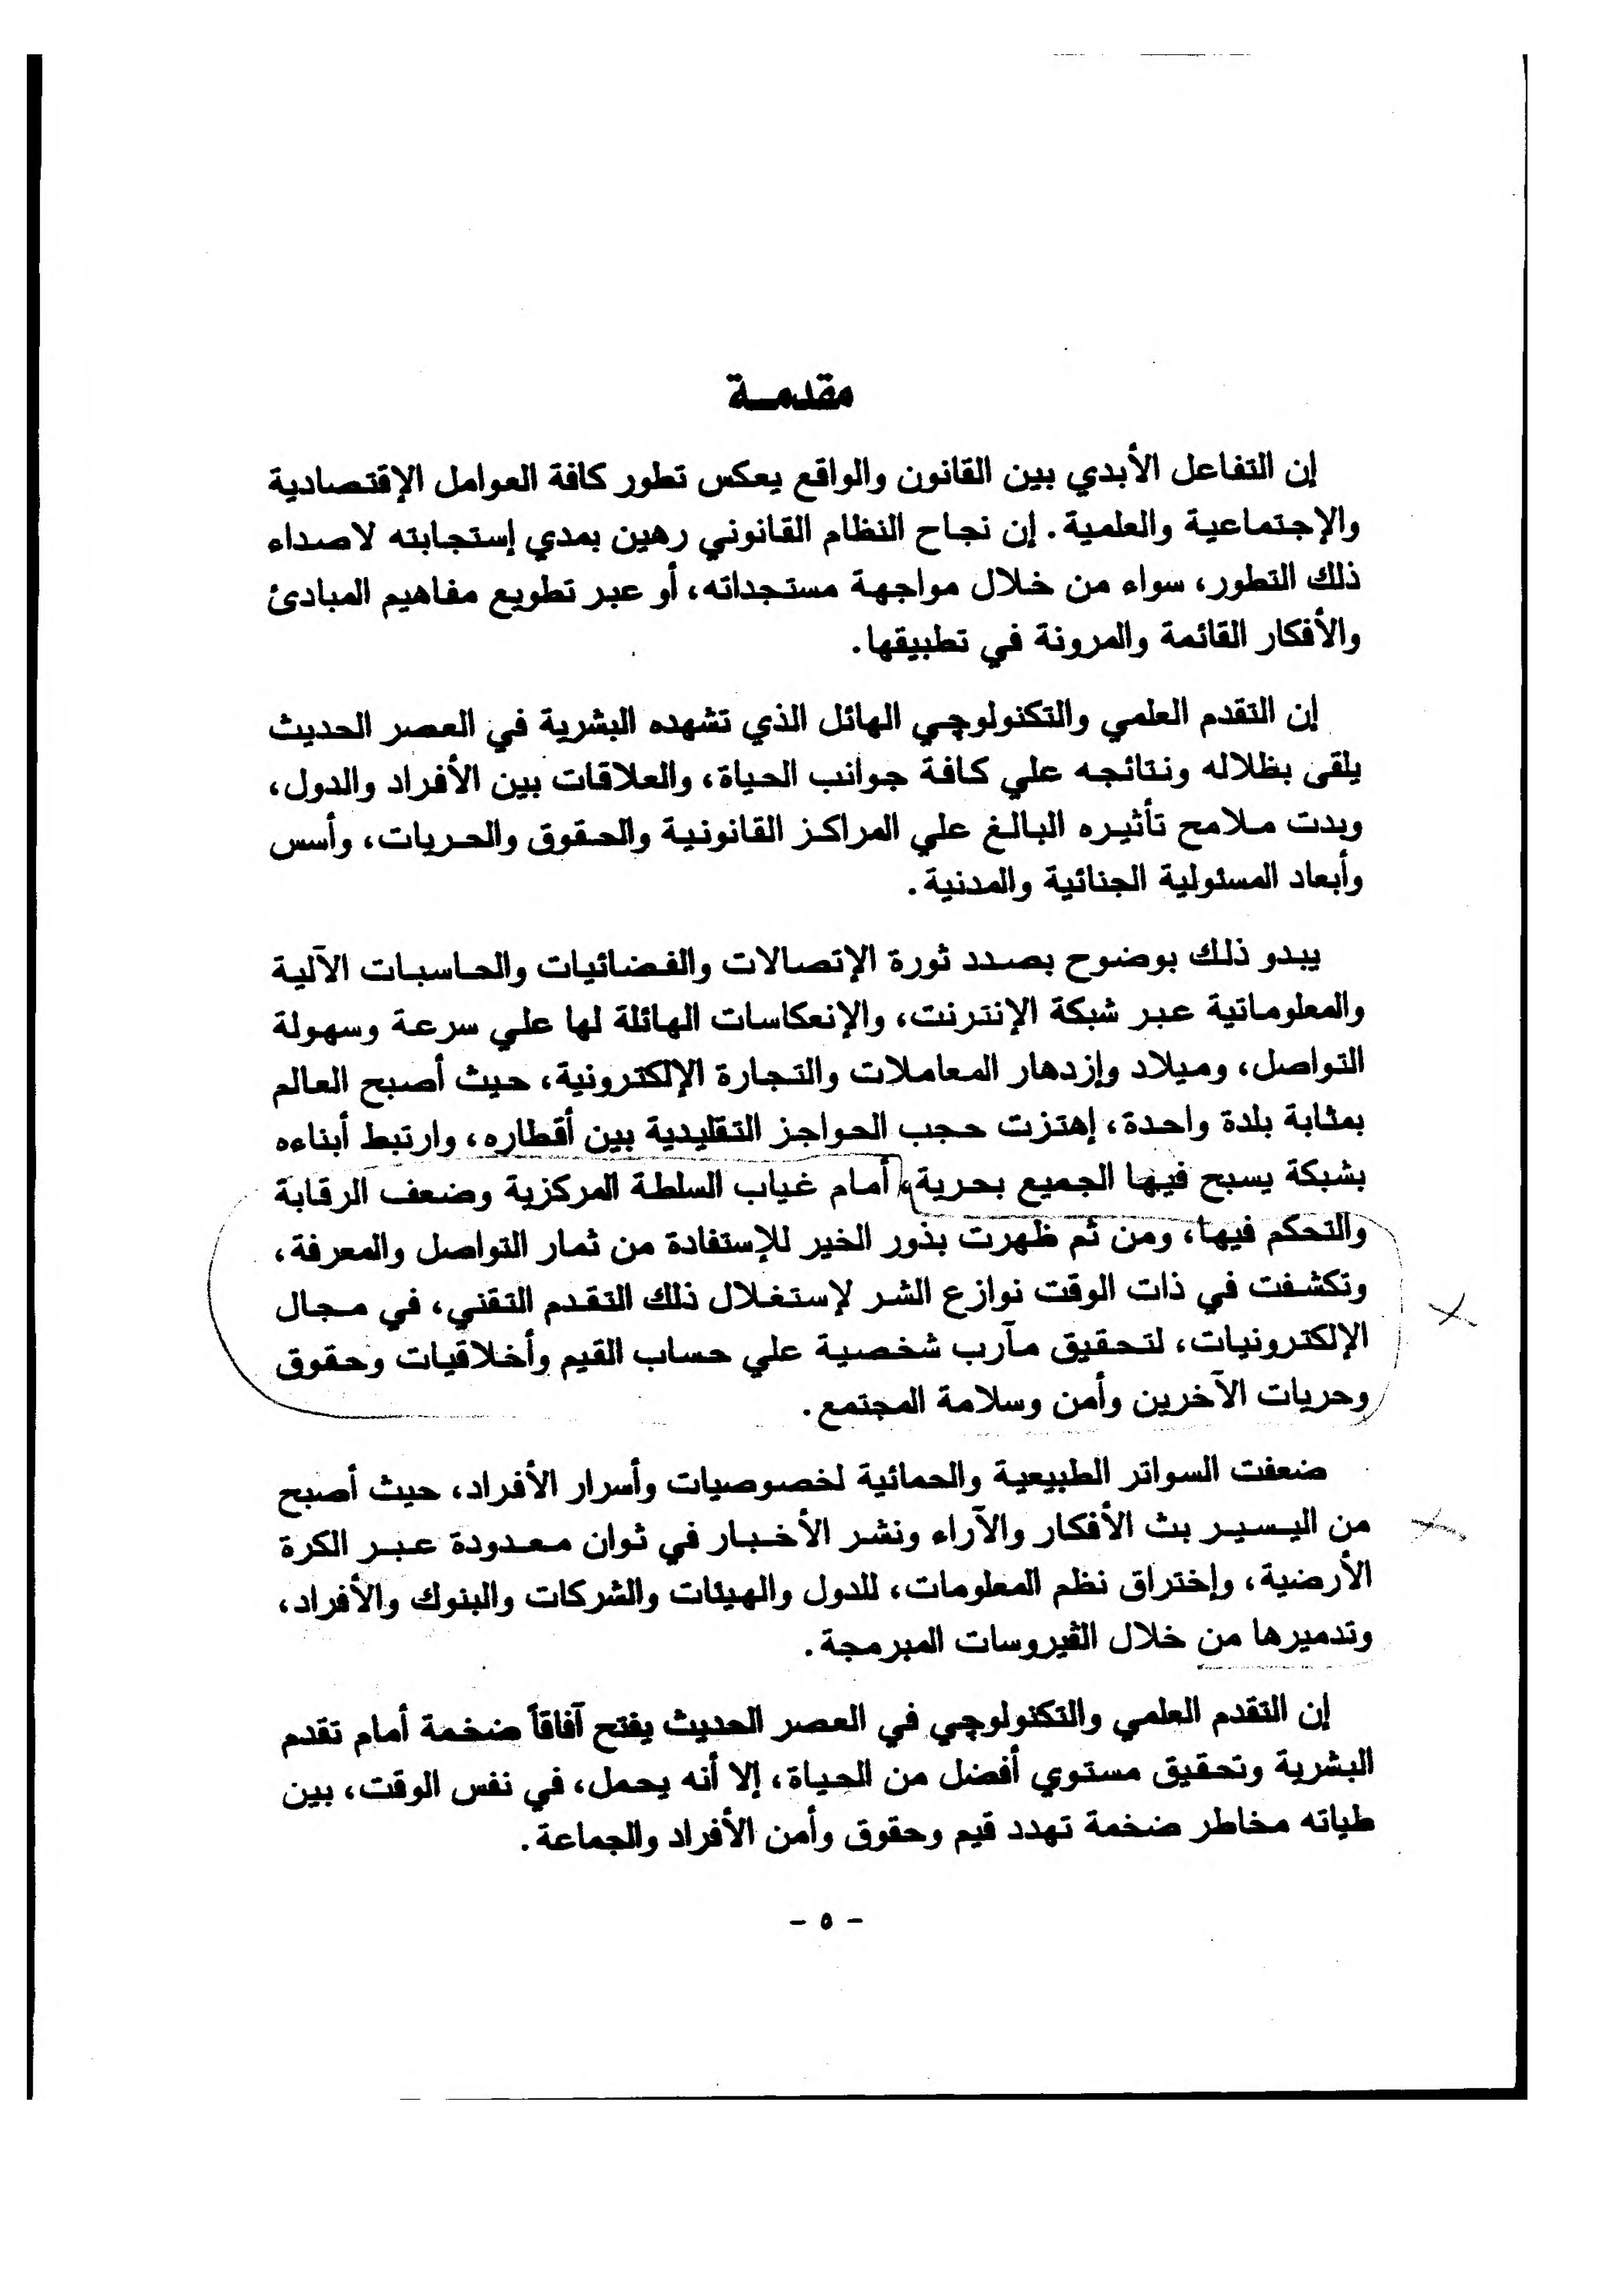 مقدمـــة
إن التفاعل الأبدي بين القانون والواقع يعكس تطور كافة العوامل الإقتصادية
والإجتماعية والعلمية. إن نجاح النظام القانوني رهين بمدي إستجابته لاصداء
ذلك التطور، سواء من خلال مواجهة مستجداته، أو عبر تطويع مفاهيم المبادئ
والأفكار القائمة والمرونة في تطبيقها.
إن التقدم العلمي والتكنولوچي الهائل الذي تشهده البشرية في العصر الحديث
يلقى بظلاله ونتائجه علي كافة جوانب الحياة، والعلاقات بين الأفراد والدول،
وبدت ملامح تأثيره البالغ علي المراكز القانونية والحقوق والحريات، وأسس
وأبعاد المسئولية الجنائية والمدنية.
يبدو ذلك بوضوح بصدد ثورة الإتصالات والفضائيات والحاسبات الآلية
والمعلوماتية عبر شبكة الإنترنت، والإنعكاسات الهائلة لها علي سرعة وسهولة
التواصل، وميلاد وإزدهار المعاملات والتجارة الإلكترونية، حيث أصبح العالم
بمثابة بلدة واحدة، إهتزت حجب الحواجز التقليدية بين أقطاره، وارتبط أبناءه
بشبكة يسبح فيها الجميع بحرية، أمام غياب السلطة المركزية وضعف الرقابة
والتحكم فيها، ومن ثم ظهرت بذور الخير للإستفادة من ثمار التواصل والمعرفة،
وتكشفت في ذات الوقت نوازع الشر لإستغلال ذلك التقدم التقني، في مجال
الإلكترونيات، لتحقيق مآرب شخصية علي حساب القيم وأخلاقيات وحقوق
وحريات الآخرين وأمن وسلامة المجتمع.
ضعفت السواتر الطبيعية والحمائية لخصوصيات وأسرار الأفراد، حيث أصبح
من اليسير بث الأفكار والآراء ونشر الأخبار في ثوان معدودة عبر الكرة
الأرضية، وإختراق نظم المعلومات، للدول والهيئات والشركات والبنوك والأفراد،
وتدميرها من خلال الڤيروسات المبرمجة.
إن التقدم العلمي والتكنولوچي في العصر الحديث يفتح آفاقاً ضخمة أمام تقدم
البشرية وتحقيق مستوي أفضل من الحياة، إلا أنه يحمل، في نفس الوقت، بين
طياته مخاطر ضخمة تهدد قيم وحقوق وأمن الأفراد والجماعة.
- ٥ -